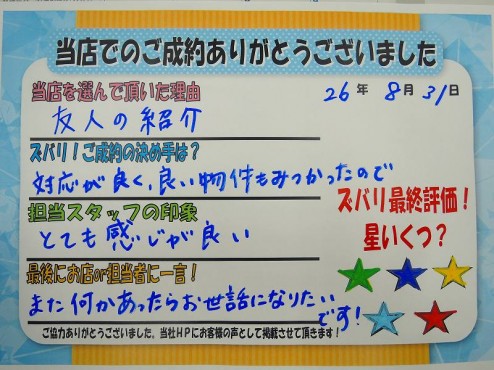 当店でのご成約ありがとうございました
当店を選んで頂いた理由
26年 8月 31日
友人の紹介
ズバリ!ご成約の決め手は?
対応が良く、良い物件もみつかったので
担当スタッフの印象
とても感じが良い
ズバリ最終評価!
星いくつ?
最後にお店or担当者に一言!
また何かあったらお世話になりたい
です!
ご協力ありがとうございました。当社HPにお客様の声として掲載させて頂きます!